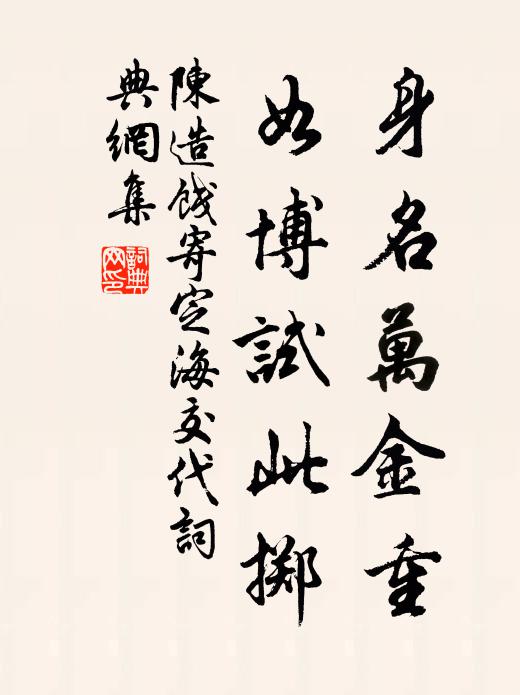 身名萬金重
如博試此擲
陳造餞寄定海交代詞
典網集
詞典
网印